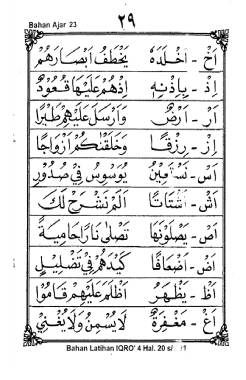 Bahan Ajar 23
٢٩
اَخْ - اَخْلَدَهٗ يَخْطَفُ اَبْصَارَهُمْ
اِذْ - بِاِذْنِهٖ اِذْهُمْ عَلَيْهَا قُعُوْدٌ
اَرْ - اَرْضٌ وَاَرْسَلَ عَلَيْهِمْ طَيْرًا
اِزْ - رِزْقًا وَخَلَقْنٰكُمْ اَزْوَاجًا
اَسْ - يُوَسْوِسُ فِيْ صُدُوْرِ
اَشْ - اَشْتَاتًا اَلَمْ نَشْرَحْ لَكَ
اَصْ - يَصْلَوْنَهَا تَصْلٰى نَارًا حَامِيَةً
اَضْ - اَضْعَافًا كَيْدَهُمْ فِيْ تَضْلِيْلٍ
اَظْ - يَظْهَرُ اَظْلَمَ عَلَيْهِمْ قَامُوْا
اَغْ - مَغْفِرَةٌ لَايُسْمِنُ وَلَايُغْنِيْ
Bahan Latihan IQRO' 4 Hal. 20 s/